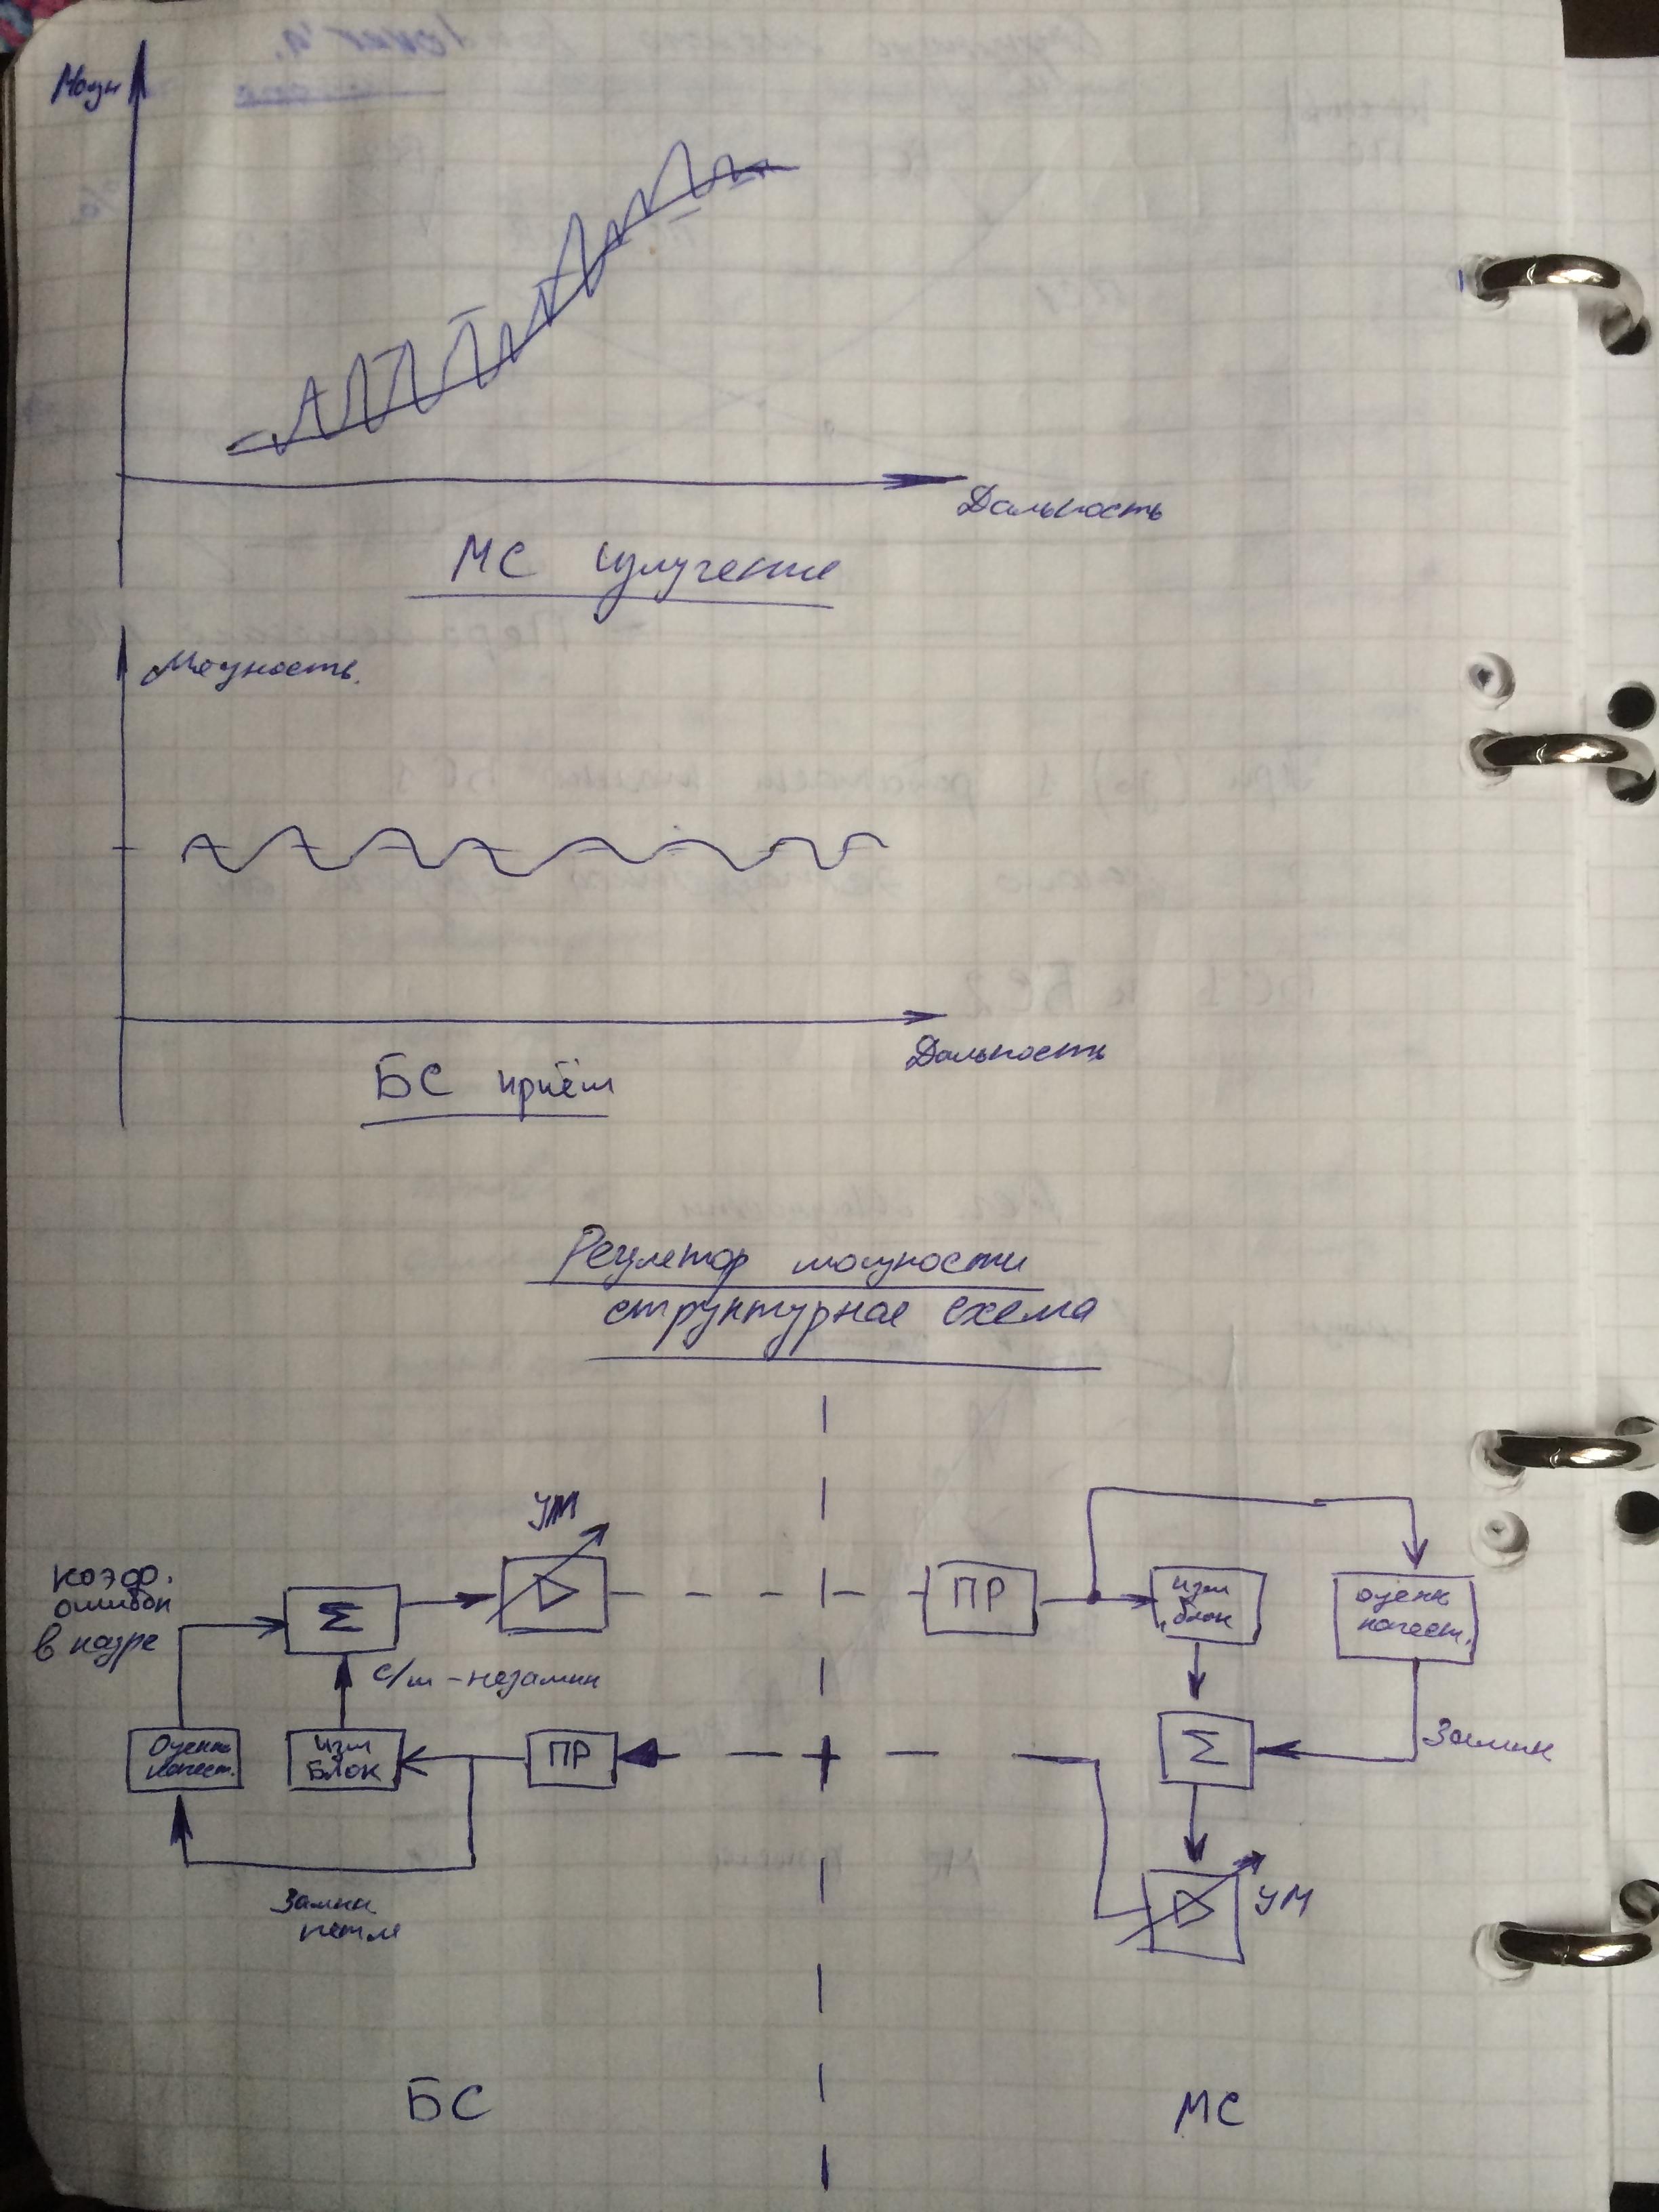 Мощн
Дальность
МС излучение
Мощность.
Дальность
БС приём
Регулетор мощности
структурная схема
УМ
коэфф.
ошибок
в кадре
Σ
ПР
изм
блок
оценк
качест.
с/ш - незамкн
Оценка
качест.
изм
БЛОК
ПР
Σ
Замкн
Замкн
петля
УМ
БС
МС